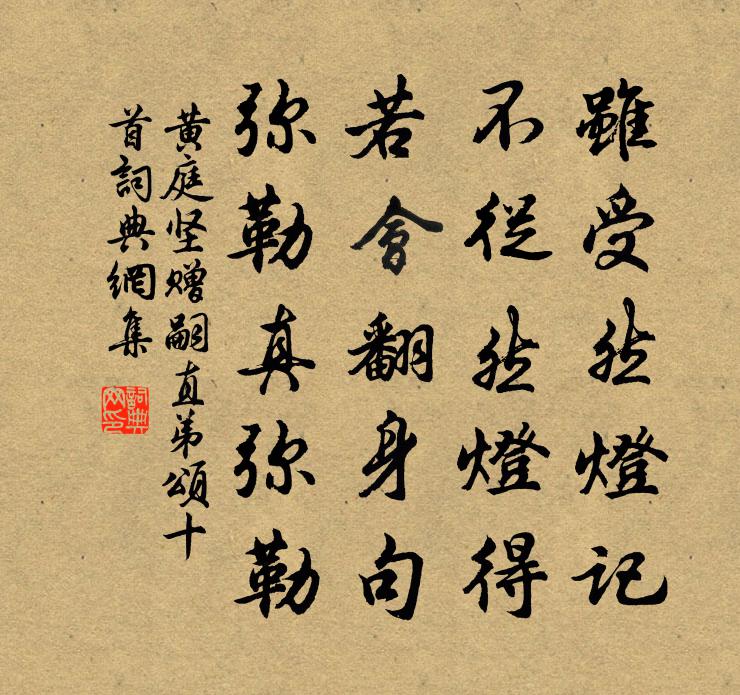 雖受然燈記
不從然燈得
若會翻身句
弥勒真弥勒
黄庭坚赠嗣直弟頌十
首詞典網集
詞典
网印